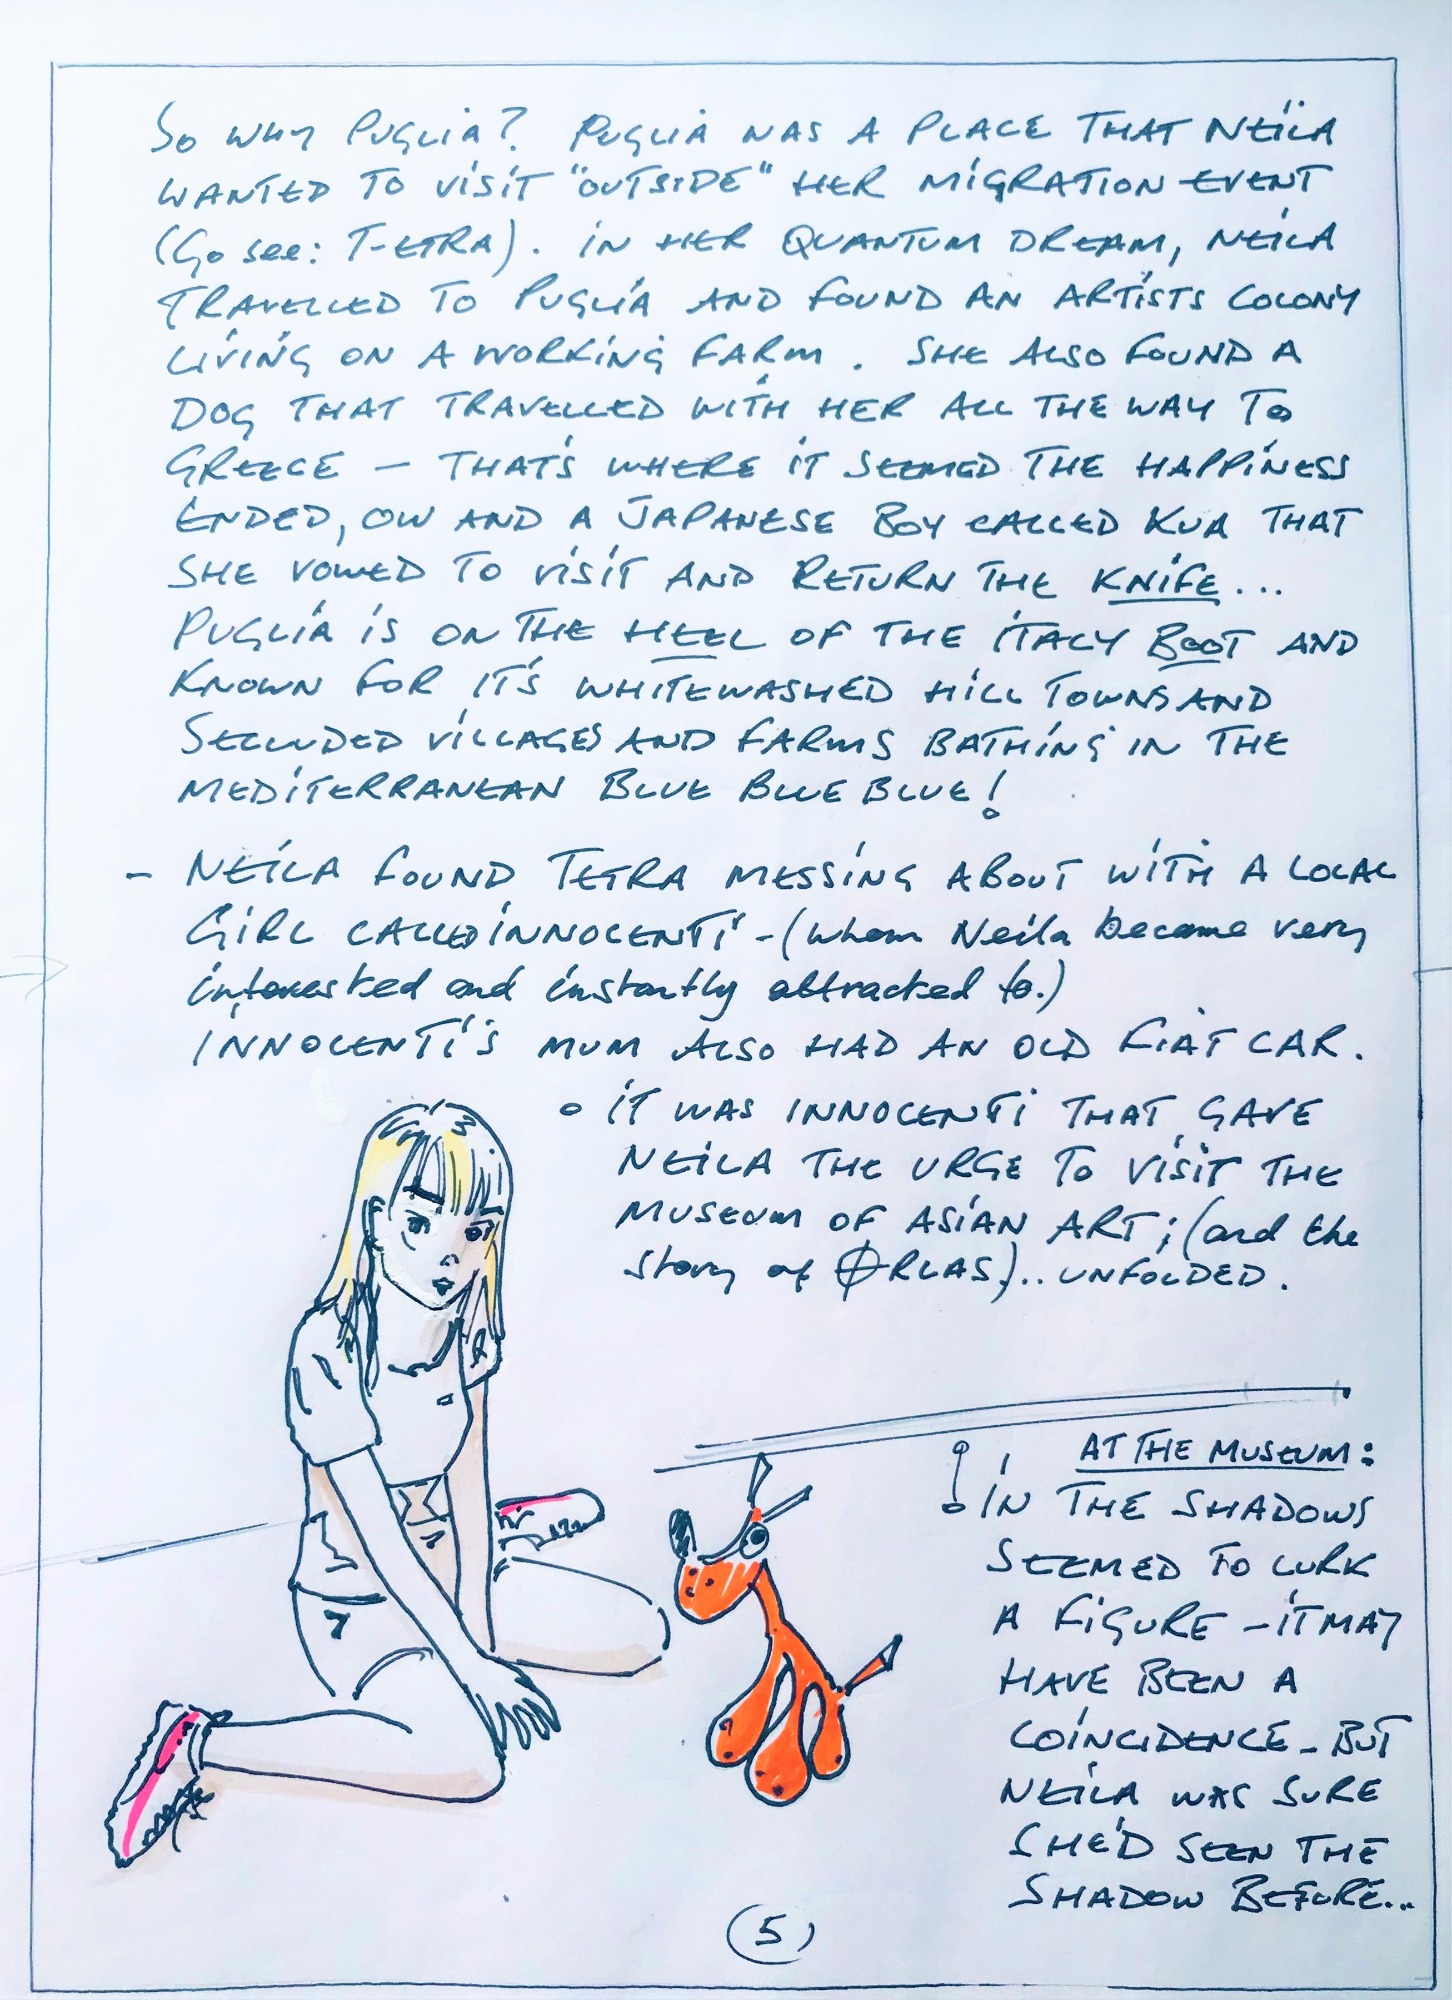 So WHY PUGLIA? PUGLIA WAS A PLACE THAT NEILA
WANTED TO VISIT "OUTSIDE" HER MIGRATION EVENT
(Go see: T-ETRA). IN HER QUANTUM DREAM, NEILA
TRAVELLED TO PUGLIA AND FOUND AN ARTISTS COLONY
LIVING ON A WORKING FARM. SHE ALSO FOUND A
DOG THAT TRAVELLED WITH HER ALL THE WAY TO
GREECE – THAT'S WHERE IT SEEMED THE HAPPINESS
ENDED, OW AND A JAPANESE BOY CALLED KUA THAT
SHE VOWED TO VISIT AND RETURN THE KNIFE...
PUGLIA IS ON THE HEEL OF THE ITALY BOOT AND
KNOWN FOR IT'S WHITEWASHED HILL TOWNS AND
SECLUDED VILLAGES AND FARMS BATHING IN THE
MEDITERRANEAN BLUE BLUE BLUE!
– NEILA FOUND TETRA MESSING ABOUT WITH A LOCAL
GIRL CALLED INNOCENTI – (whom Neila became very
interested and instantly attracted to.)
INNOCENTI'S MUM ALSO HAD AN OLD FIAT CAR.
o IT WAS INNOCENTI THAT GAVE
NEILA THE URGE TO VISIT THE
MUSEUM OF ASIAN ART; (and the
story of ØRLAS)... UNFOLDED.
AT THE MUSEUM:
IN THE SHADOWS
SEEMED TO LURK
A FIGURE – IT MAY
HAVE BEEN A
COINCIDENCE – BUT
NEILA WAS SURE
SHE'D SEEN THE
SHADOW BEFORE...
(5)